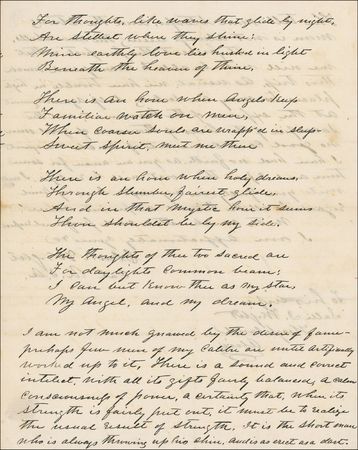 For thoughts, like waves that glide by night,
Are stillest where they shine:
Mine earthly love lies hushed in light
Beneath the heaven of thine.
There is an hour when Angels keep
Familiar watch on men,
When coarser souls are wrapped in sleep
Sweet spirit, meet me then
There is an hour when holy dreams
Through slumber fairest glide,
And in that mystic hour it seems
Thou shouldst be by my side.
The thoughts of thee too sacred are
For daylights common beam;
I can but know thee as my star
My Angel, and my dream.
I am not much gnawed by the desire of fame-
perhaps few men of my calibre are until artificially
worked up to it, There is a sound and correct
intellect, with all its gifts fairly balanced, a calm
consciousness of power, a certainty that, when its
strength is fairly put out, it must be to realize
the usual result of strength. It is the short man
who is always throwing up his chin, and is as erect as a dart.